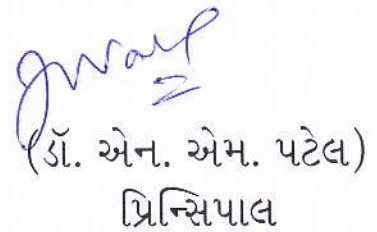 (ડૉ. એન. એમ. પટેલ)
પ્રિન્સિપાલ